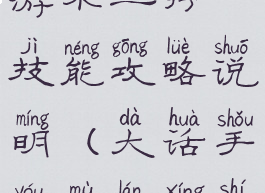 jì néng gōng lüè shuō
技能攻略说
míng dà huà shǒu
明(大话手
yóu mù lán xíng shí